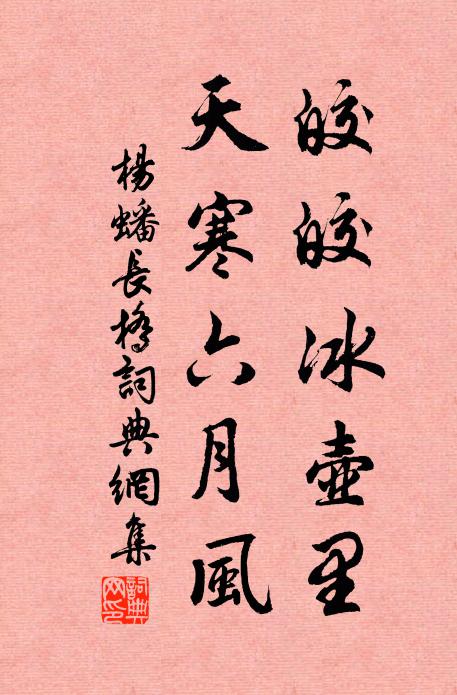 皎皎冰壺里
天寒六月風
楊蟠長橋詞典網集
詞典網印